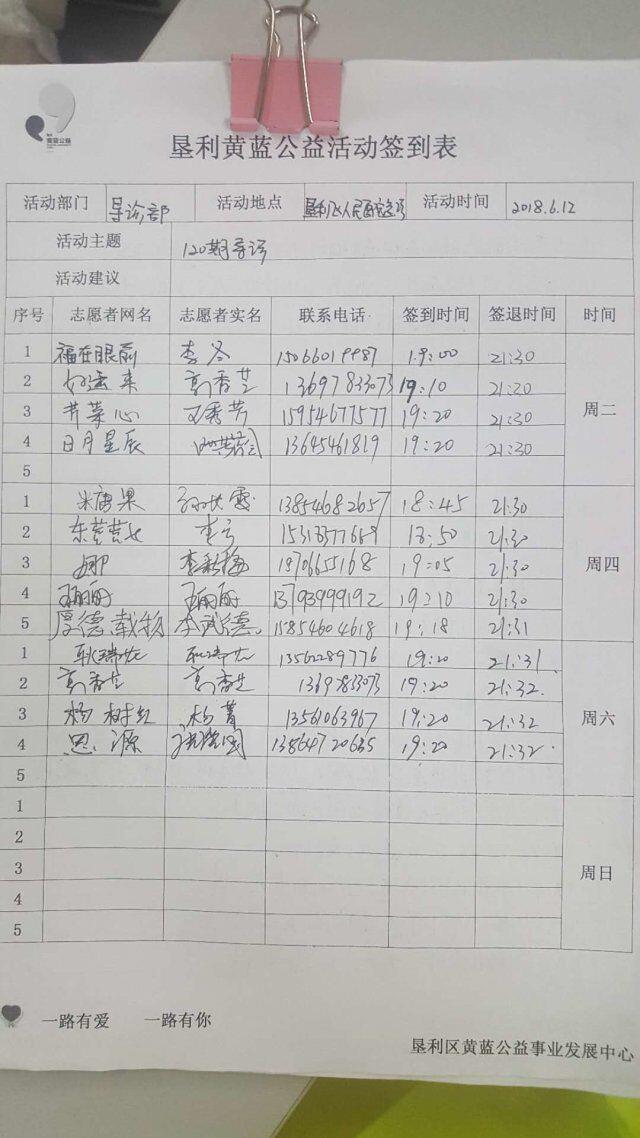 黄蓝公益
垦利黄蓝公益活动签到表
活动部门 导诊部 活动地点 垦利区人民医院 活动时间 2018.6.12
活动主题 120期导诊
活动建议
序号 志愿者网名 志愿者实名 联系电话 签到时间 签退时间 时间
1 福在眼前 李 15066019987 19:00 21:30
2 好运来 高香芝 13697833073 19:10 21:30
3 芹菜心 秀芳 15954677577 19:20 21:30
4 日月星辰 13645461819 19:20 21:30
周二
5
1 米唐果 13854682657 18:45 21:30
2 东 李 18:50 21:30
3 娜 李彩梅 19:05 21:30
周四
4 丽丽 丽丽 13793999192 19:10 21:30
5 厚德载物 李武德 15854604618 19:18 21:31
1 耿瑞龙 耿瑞龙 19:20 21:31
2 高香芝 高香芝 13697833073 19:20 21:32
3 杨树红 杨菁 13561063967 19:20 21:32
周六
4 思源 19:20 21:32
5
1
2
3
周日
4
5
一路有爱 一路有你
垦利区黄蓝公益事业发展中心